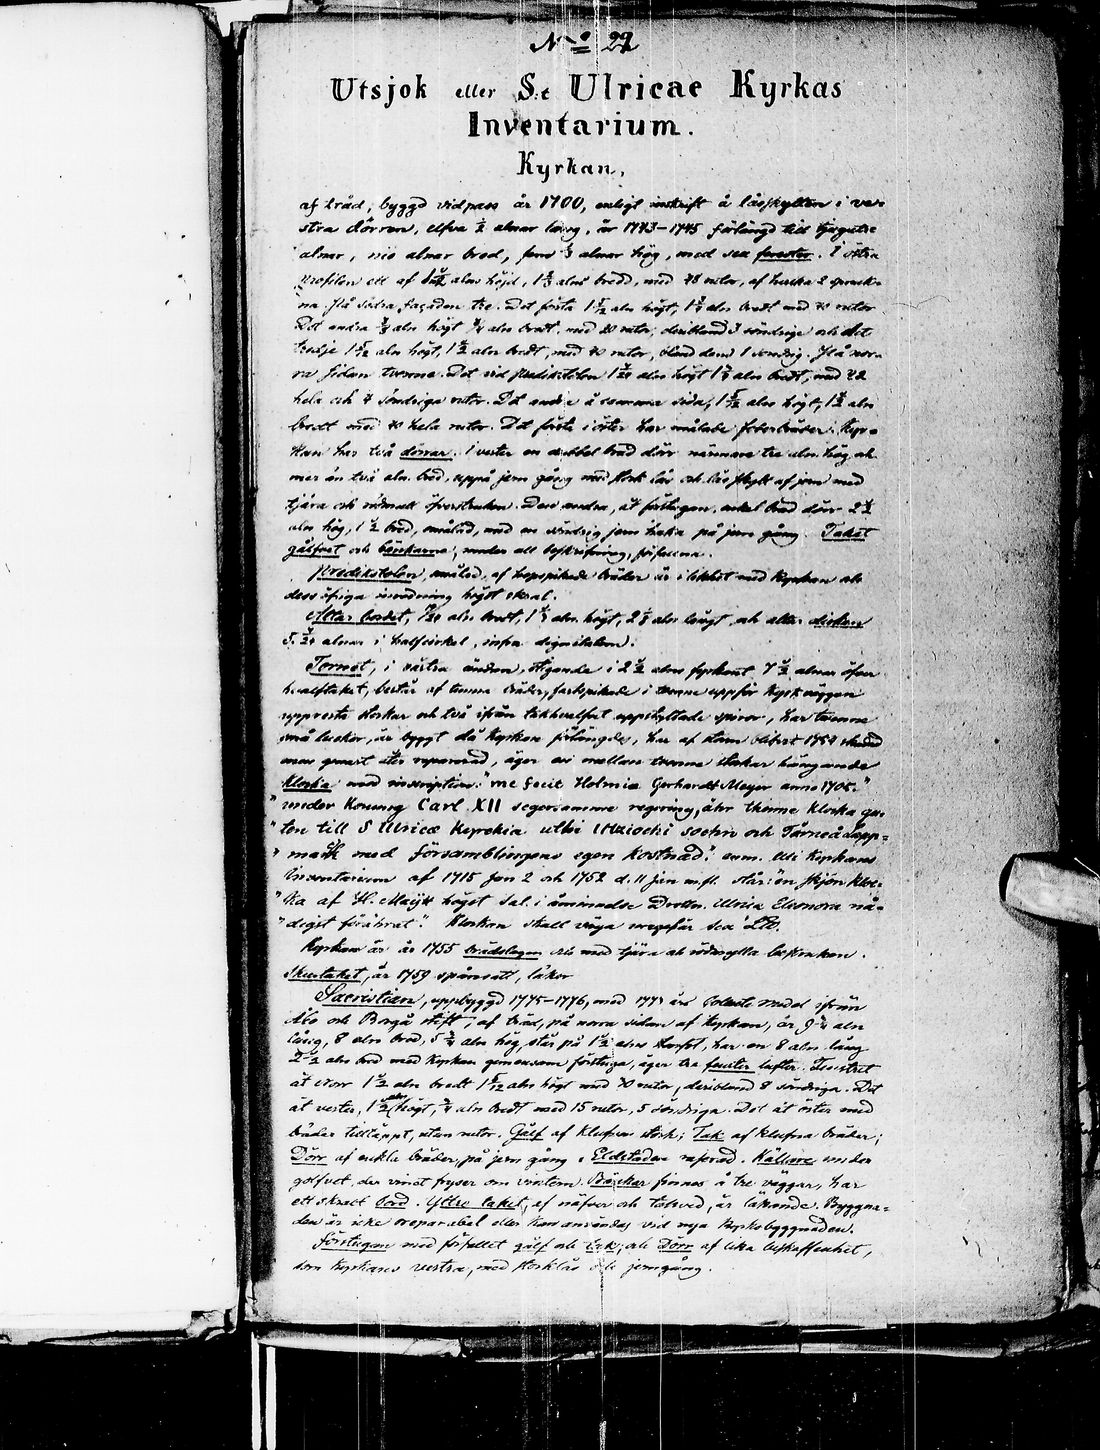 No 29
Utsjok eller S:t Ulricae Kyrkas
Inventarium.
Kyrkan,
af träd, byggd vidpass år 1700, enligt inskrift å låsskylten i ve-
stra dörren, elfva ½ alnar lång, år 1743-1745 förlängd till tjugutre
alnar, nio alnar bred, fem ⅓ alnar hög, med sex fenester. I östra
profilen ett af alns höjd, alns bredd, med 48 rutor, af hvilka 2 spruck-
na. På södra façaden tre. Det första 1 5/12 aln högt, aln bredt med 40 rutor
Det andra ¾ aln högt ¾ aln bredt, med 20 rutor, deribland 3 söndriga och det
tredje 1 5/12 aln högt, 1 ½ aln bredt, med 40 rutor, bland dem 1 söndrig. På nor-
ra sidan tvenne. Det vid predikstolen aln högt aln bredt, med 42
hela och 4 söndriga rutor. Det andra å samma sida, 1 5/12 aln högt, 1 ½ aln
bredt med 40 hela rutor. Det första i öster har målade foderbräder. Kyr-
kan har två dörrar. I vester en dubbel bred dörr närmare tre aln. hög och
mer än två aln. bred, uppå jern gång med stock lås och låsskylt af jern med
tjära och rödmull öfverstruken. Den andra, åt förstugan, enkel bred dörr 2 ½
aln hög, 1 ½ bred, omålad, med en söndrig jern haka på jern gång. Taket
gålfvet och bänkarne, under all beskrifning, förfallna.
Predikstolen, målad, af hopspikade bräder är i likhet med Kyrkan och
dess öfriga inredning högst skral.
Altar bordet, aln bredt, aln högt, aln långt, och altar disken
alnar i halfcirkel, infra dignitatem.
Tornet, i västra ändan, stigande i 2 ½ alns fyrkant 7 ½ alnar öfver
hvalftaket, består af tunna bräder, fastspikade i tvenne uppför kyrkväggen
uppresta stockar och två ifrån takhvalfvet uppskyltade spiror, har tvenne
små luckor, är byggt då kyrkan förlängdes, har af storm blifvit 1754 skadad
men genast åter reparerad, äger en mellan tvenne stakar hängande
Klocka med inscription: "me fecit Holmiæ Gerhardt Meyer anno 1705."
"under Konung Carl XII segersamme regering, åhr thenne Klocka gu-
"ten till S Ulricæ Kyrckia uthi Utziochi sochn och Tårneå Lapp-
"mark med församblingens egen kostnad." enm. Uti Kyrkans
Inventarium af 1715 Jan 2 och 1752 d. 11 Jan m.fl. står: "en skjön kloc-
"ka af H. Maijt högst sal. i åminnelse Drottn. Ulrica Eleonora nå-
"digst förährat". Klockan skall väga ungefär sex L℔.
Kyrkan är år 1755 brädslagen och med tjära och rödmylla bestruken.
Skurtaket, år 1759 spånsatt, läker
Sacristian, uppbyggd 1775-1776, med 1773 års collects medel ifrån
Åbo och Borgå stift, af träd, på norra sidan af kyrkan, är aln
lång, 8 aln bred, aln hög, står på 1 ½ alns stenfot, har en 8 aln. lång
2 ½ aln bred med kyrkan gemensam förstuga, äger tre fenster lufter. Fenstret
åt norr 1 ½ aln bredt 1 5/12 aln högt med 40 rutor, deribland 8 söndriga. Det
åt vester, 1 ½ aln högt, ¾ aln bredt med 15 rutor, 5 söndriga. Det åt öster med
bräder tilltäppt, utan rutor. Gålf af klufven stock; Tak af klufna bräder;
Dörr af enkla bräder, på jern gång. Eldstaden raserad. Källare under
golfvet, der vinet fryser om vintern. Bänkar finnes å tre väggar, har
ett skralt bord. Yttre taket, af näfver och takved, är läkande. Byggna-
den är icke reparabel eller kan användas vid nya kyrkobyggnaden.
Förstugan med förfallet gålf och tak, och Dörr af lika beskaffenhet,
som Kyrkans vestra, med stocklås och jerngång.